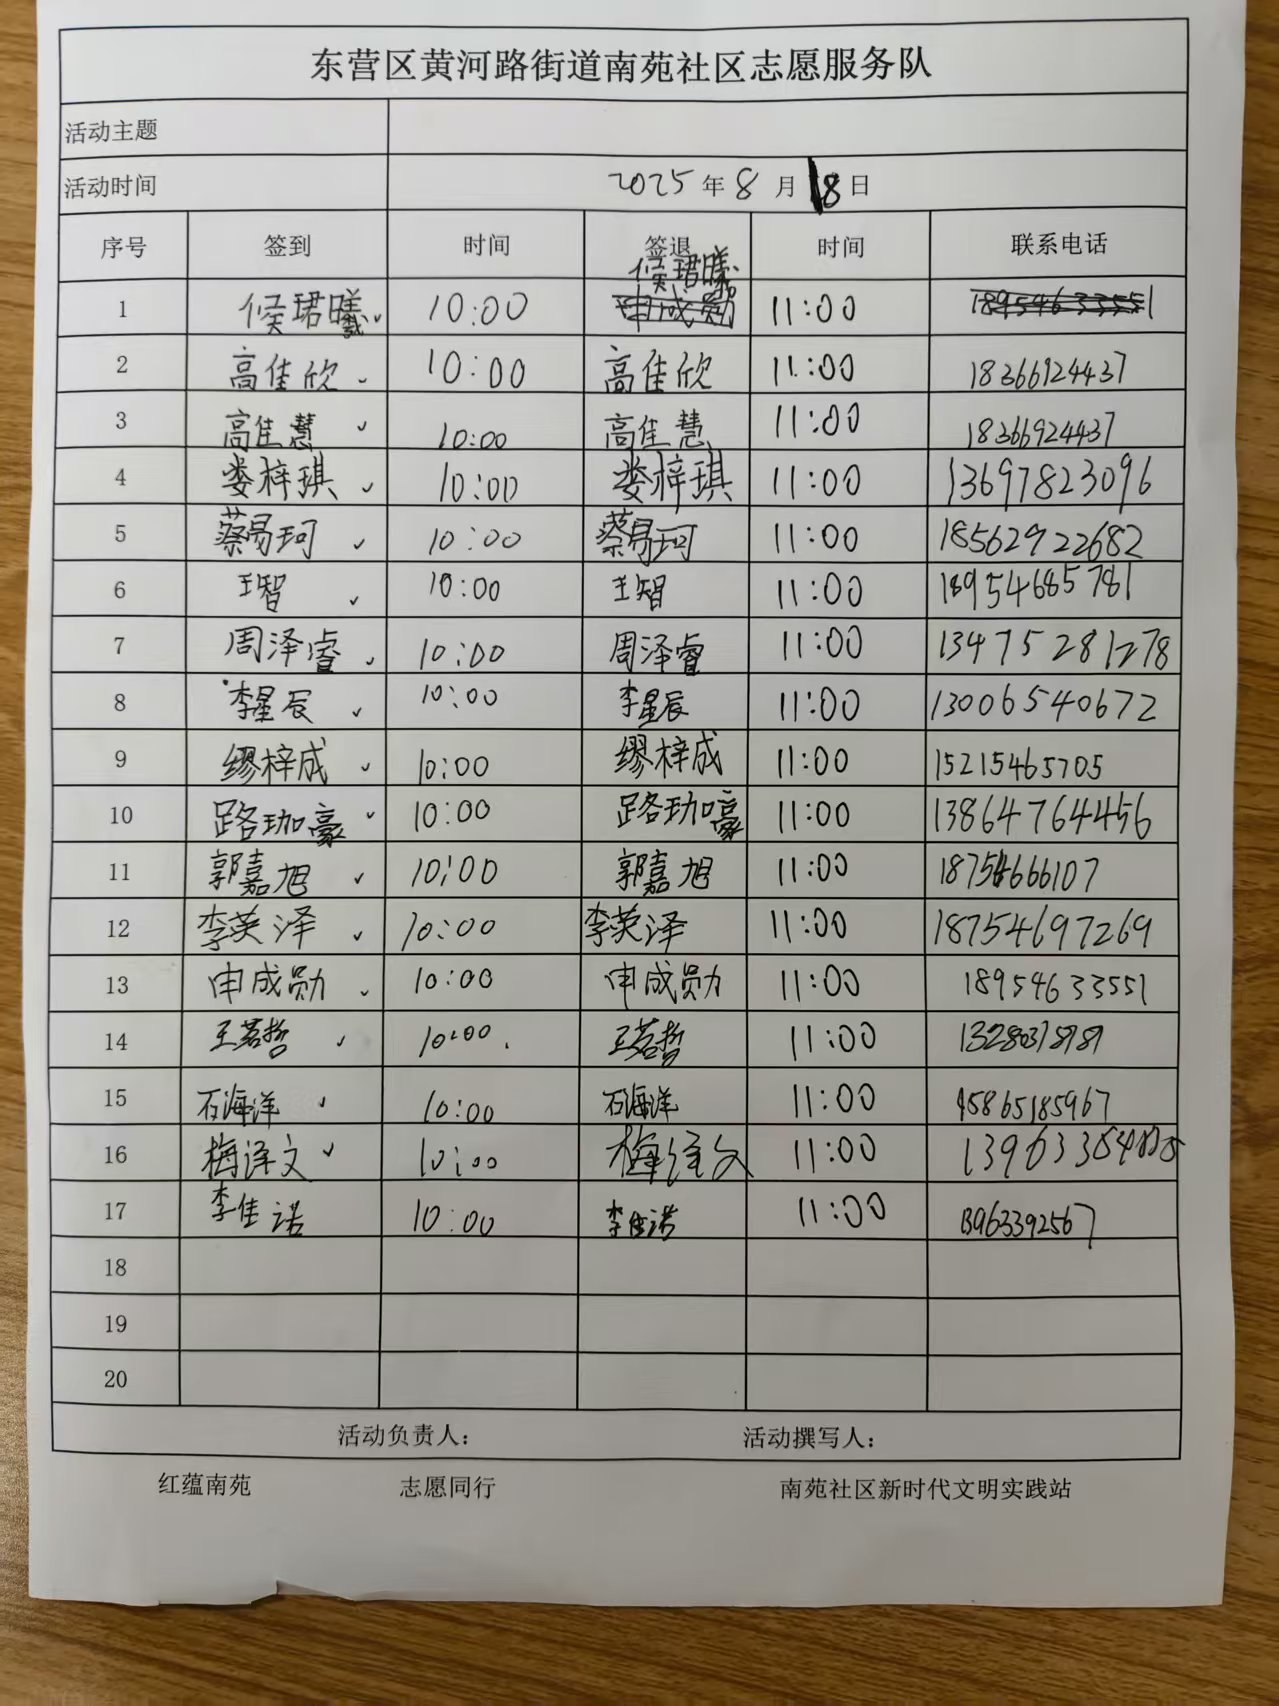 东营区黄河路街道南苑社区志愿服务队
活动主题
活动时间 2025年8月18日
序号 签到 时间 签退 时间 联系电话
1 侯珺曦 10:00 侯珺曦 11:00
2 高佳欣 10:00 高佳欣 11:00 18366924437
3 高佳慧 10:00 高佳慧 11:00 18366924437
4 娄梓琪 10:00 娄梓琪 11:00 13697823096
5 蔡易珂 10:00 蔡易珂 11:00 18562922682
6 王智 10:00 王智 11:00 18954685781
7 周泽睿 10:00 周泽睿 11:00 13475281278
8 李星辰 10:00 李星辰 11:00 13006540672
9 缪梓成 10:00 缪梓成 11:00 15215465705
10 路珈豪 10:00 路珈豪 11:00 13864764456
11 郭嘉旭 10:00 郭嘉旭 11:00 18754666107
12 李英泽 10:00 李英泽 11:00 18754697269
13 申成勋 10:00 申成勋 11:00 18954633551
14 王茗哲 10:00 王茗哲 11:00
15 石海洋 10:00 石海洋 11:00 15865185967
16 梅泽文 10:00 梅泽文 11:00
17 李佳诺 10:00 李佳诺 11:00 13963392567
18
19
20
活动负责人： 活动撰写人：
红蕴南苑 志愿同行 南苑社区新时代文明实践站